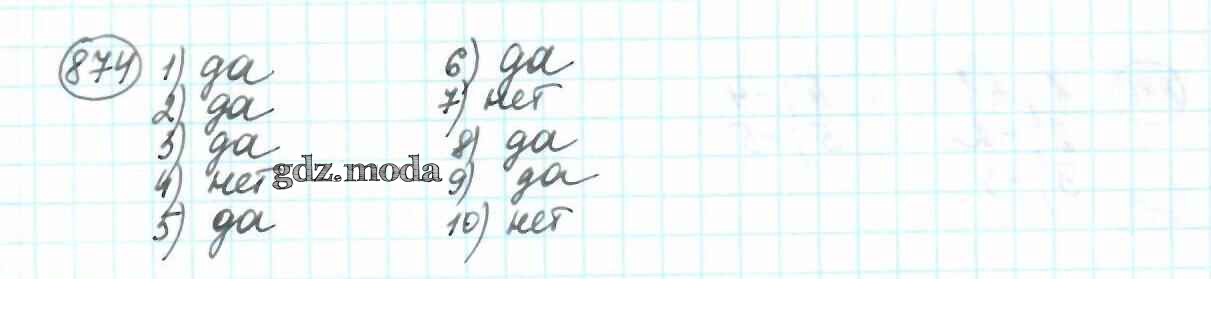 874 1) да 6) да
2) да 7) нет
3) да 8) да
4) нет gdz.moda 9) да
5) да 10) нет